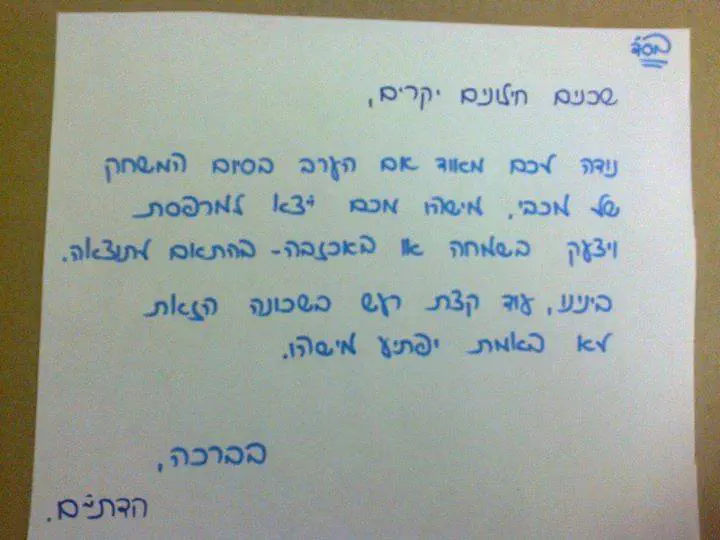 בס"ד
שכנים חילונים יקרים,
נודה לכם מאוד אם הערב בסיום המשחק
של מכבי, מישהו מכם יצא למרפסת
ויצעק בשמחה או באכזבה - בהתאם לתוצאה.
בינינו, עוד קצת רעש בשכונה הזאת
לא באמת יפתיע מישהו.
בברכה,
הדתיים.